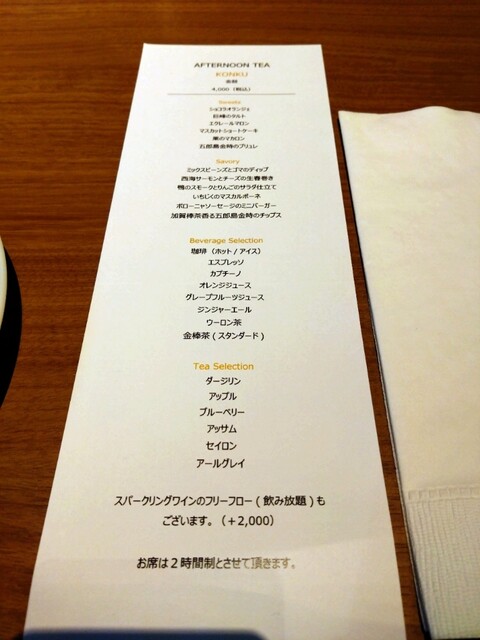 AFTERNOON TEA
KONKU
金躯
4,000（税込）
Sweets
ショコラオランジェ
巨峰のタルト
エクレールマロン
マスカットショートケーキ
栗のマカロン
五郎島金時のブリュレ
Savory
ミックスビーンズとゴマのディップ
西海サーモンとチーズの生春巻き
鴨のスモークとりんごのサラダ仕立て
いちじくのマスカルポーネ
ボローニャソーセージのミニバーガー
加賀棒茶香る五郎島金時のチップス
Beverage Selection
珈琲 （ホット / アイス）
エスプレッソ
カプチーノ
オレンジジュース
グレープフルーツジュース
ジンジャーエール
ウーロン茶
金棒茶 ( スタンダード )
Tea Selection
ダージリン
アップル
ブルーベリー
アッサム
セイロン
アールグレイ
スパークリングワインのフリーフロー ( 飲み放題 ) も
ございます。（＋2,000）
お席は２時間制とさせて頂きます。